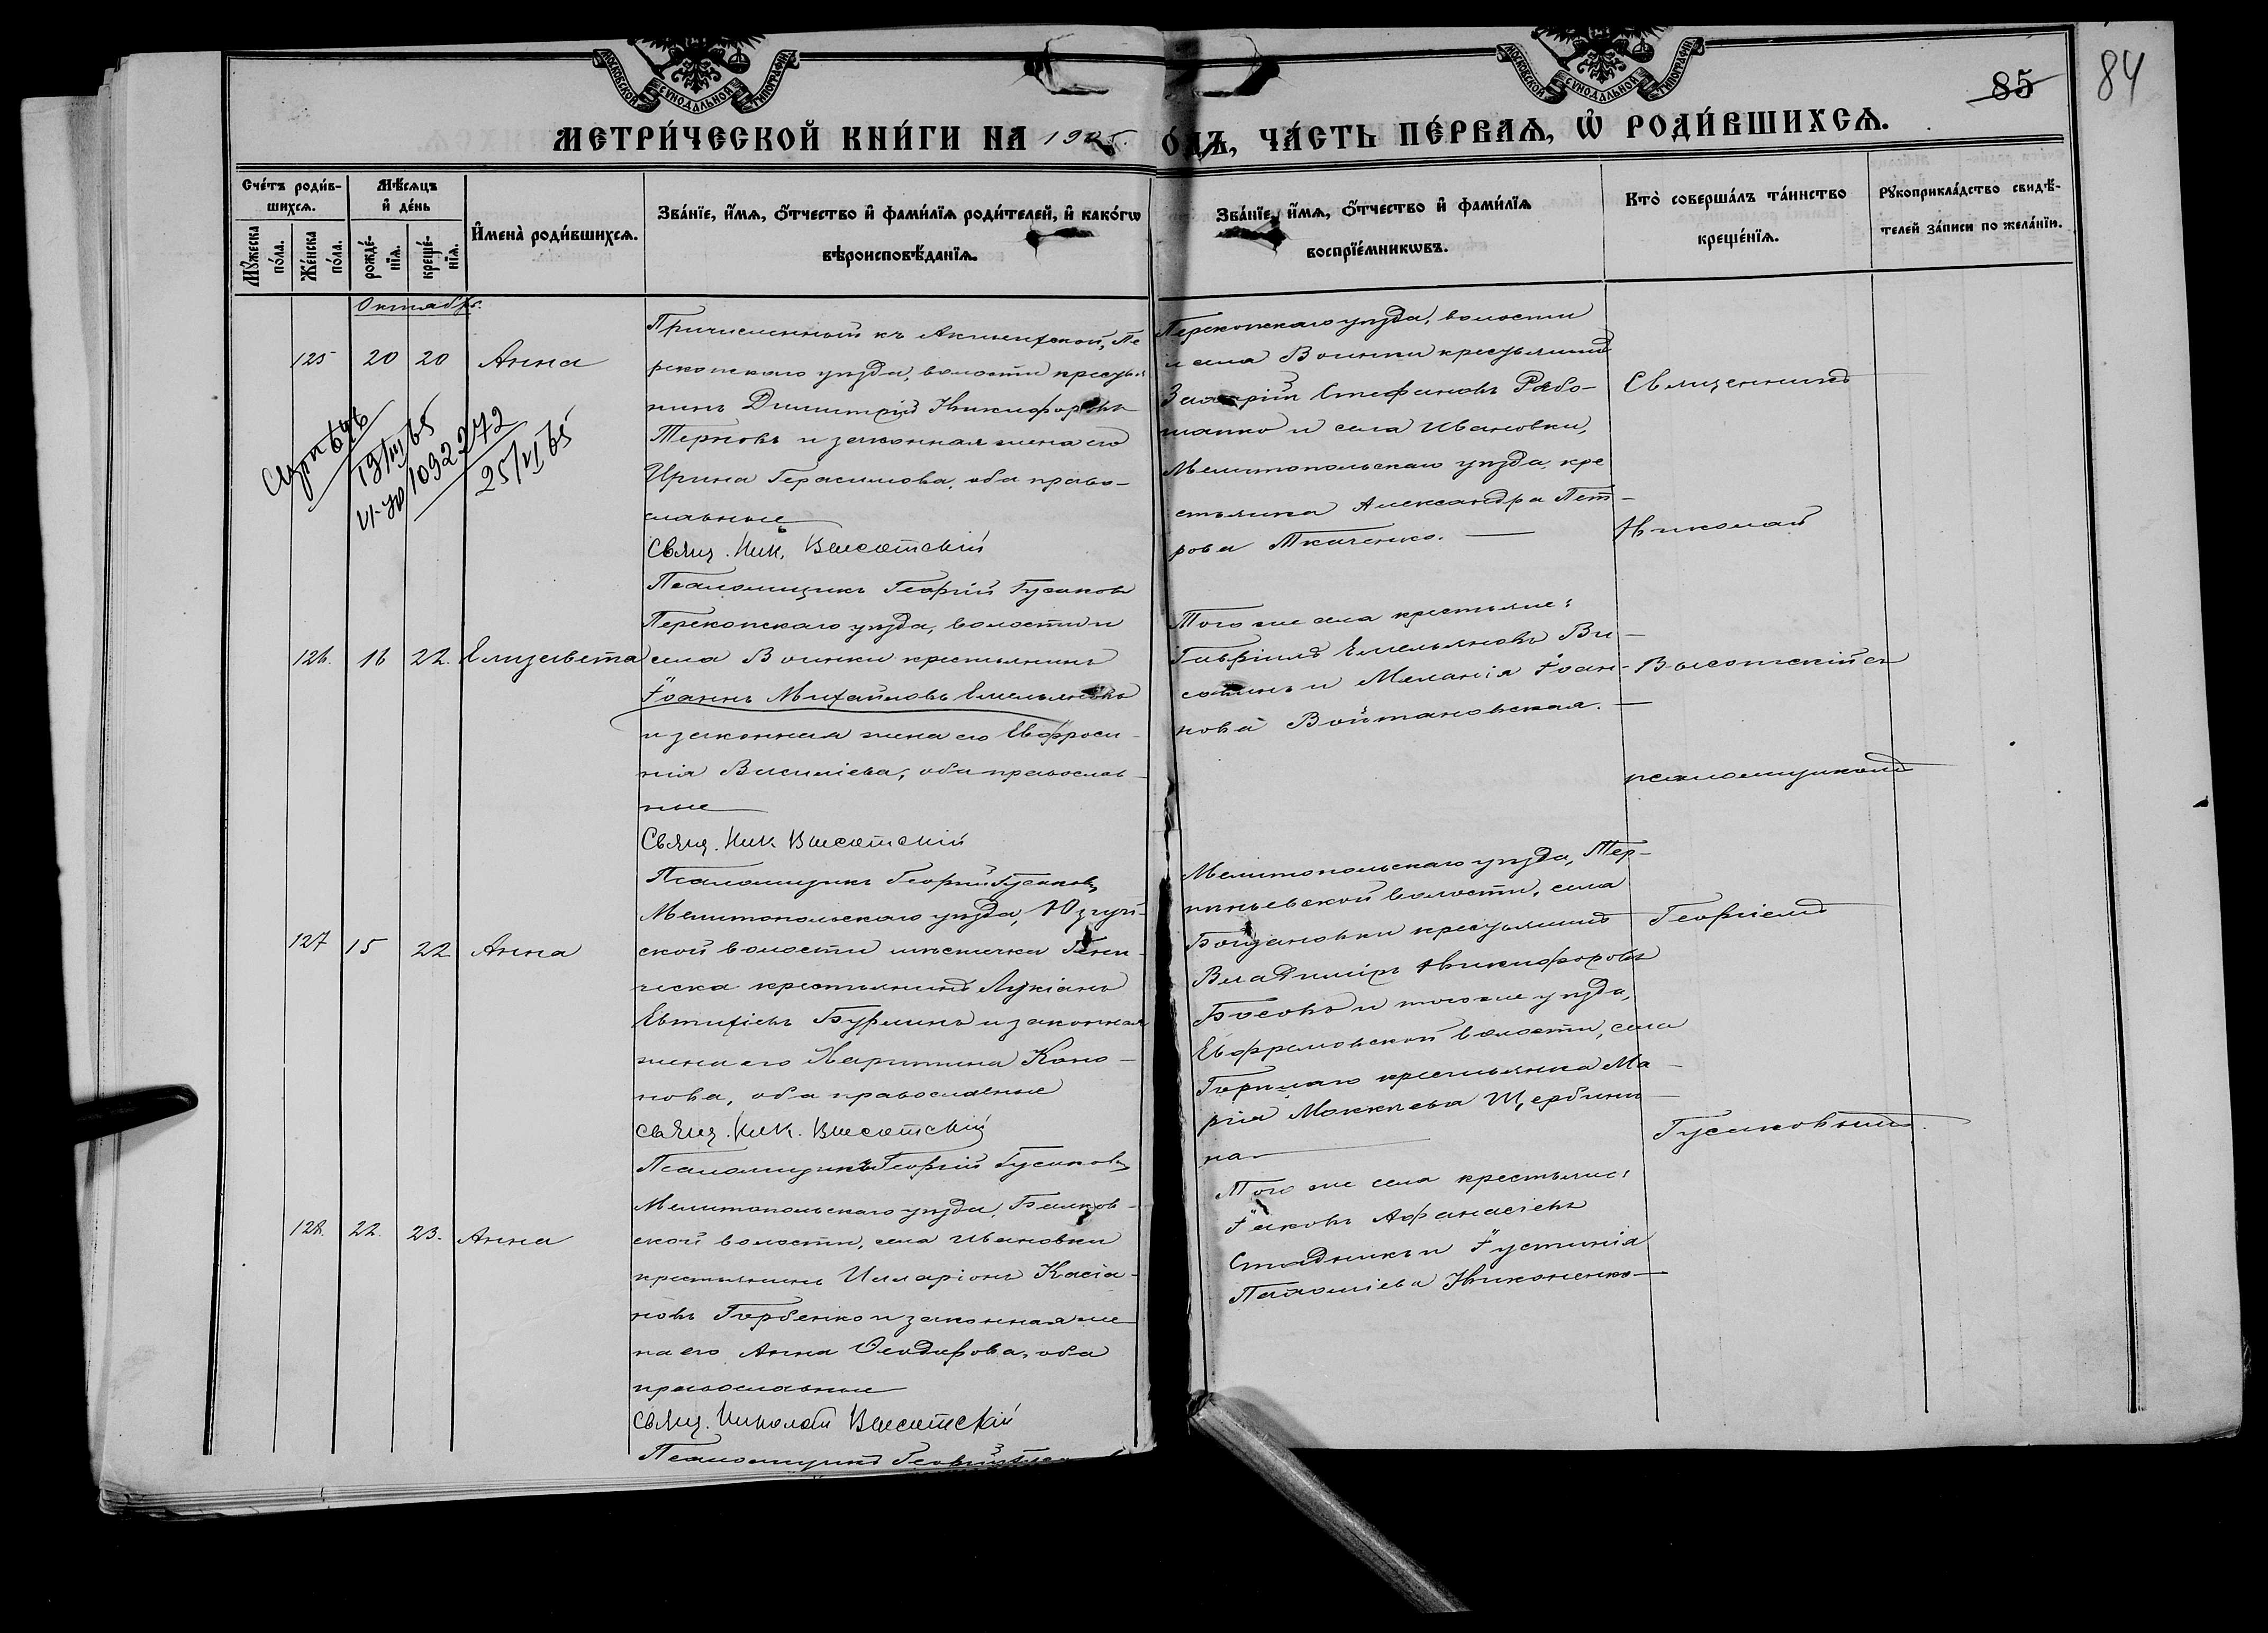 МОСКОВСКОЙ СѴНОДАЛЬНОЙ ТИПОГРАФІИ
МОСКОВСКОЙ СѴНОДАЛЬНОЙ ТИПОГРАФІИ
85
84
МЕТРИ́ЧЕСКОЙ КНИ́ГИ НА 1905. ОДЪ, ЧА́СТЬ ПЕ́РВАѦ, Ѡ҆ РОДИ́ВШИХСѦ.
Сче́тъ роди́в-
шихсѧ.
Мꙋ́жеска по́ла.
Же́нска по́ла.
Мѣ́сѧцъ и҆ де́нь
рожде́-
нїѧ.
креще́-
нїѧ.
И҆мена̀ роди́вшихсѧ.
Зва́нїе, и҆́мѧ, ѻ҆́тчество и҆ фами́лїѧ роди́телей, и҆ како́гѡ
вѣроисповѣ́данїѧ.
Зва́нїе, и҆́мѧ, ѻ҆́тчество и҆ фами́лїѧ
воспрїе́мникѡвъ.
Кто̀ соверша́лъ та́инство
креще́нїѧ.
Рꙋкоприкла́дство свидѣ́-
телей за́писи по жела́нїю.
Октябрь.
125 20 20 Анна
19/III 65
1092272
25/VI 65
Причисленный къ Акимовской, Пе
рекопскаго уѣзда, волости крестья
нинъ Димитрій Никифоровъ
Терновъ и законная жена его
Ирина Герасимова, оба право-
славные
Свящ. Ник. Высотскій
Псаломщикъ Георгій Гусаковъ
Перекопскаго уѣзда, волости
и села Воинки крестьянинъ
Захарій Стефановъ Рябо-
шапко и села Ивановки,
Мелитопольскаго уѣзда, кре
стьянка Александра Пет-
рова Ткаченко.
Священникъ
Николай
Высотскій съ
псаломщикомъ
Георгіемъ
Гусаковымъ.
126. 16 22. Елизавета
Перекопскаго уѣзда, волости и
села Воинки крестьянинъ
Іоаннъ Михайловъ Емельяновъ
и законная жена его Евфроси-
нія Василіева, оба православ-
ные
Свящ. Ник Высотскій
Псаломщикъ Георгій Гусаковъ
Того же села крестьяне:
Гавріилъ Емельяновъ Ви-
и Меланія Іоан-
нова Войтановская.
127 15 22 Анна
Мелитопольскаго уѣзда, Юзкуй-
ской волости мѣстечка Гени-
ческа крестьянинъ Лукіанъ
Евтихіевъ Бурлинъ и законная
жена его Харитина Коно-
нова, оба православные
Свящ. Ник. Высотскій
Псаломщикъ Георгій Гусаковъ
Мелитопольскаго уѣзда, Тер-
пѣньевской волости, села
Богдановки крестьянинъ
Владиміръ Никифоровъ
Босовъ и того же уѣзда,
Ефремовской волости, села
Горѣлаго крестьянка Ма-
рія Моккіева Щербини-
на
128. 22. 23. Анна
Мелитопольскаго уѣзда, Балков-
ской волости, села Ивановки
крестьянинъ Илларіонъ Касіа-
новъ Горбенко и законная же
на его Анна Ѳеодорова, оба
православные
Свящ. Николай Высотскій
Псаломщикъ Георгій
Того же села крестьяне:
Іаковъ Афанасіевъ
Стадникъ и Іустинія
Никоненко